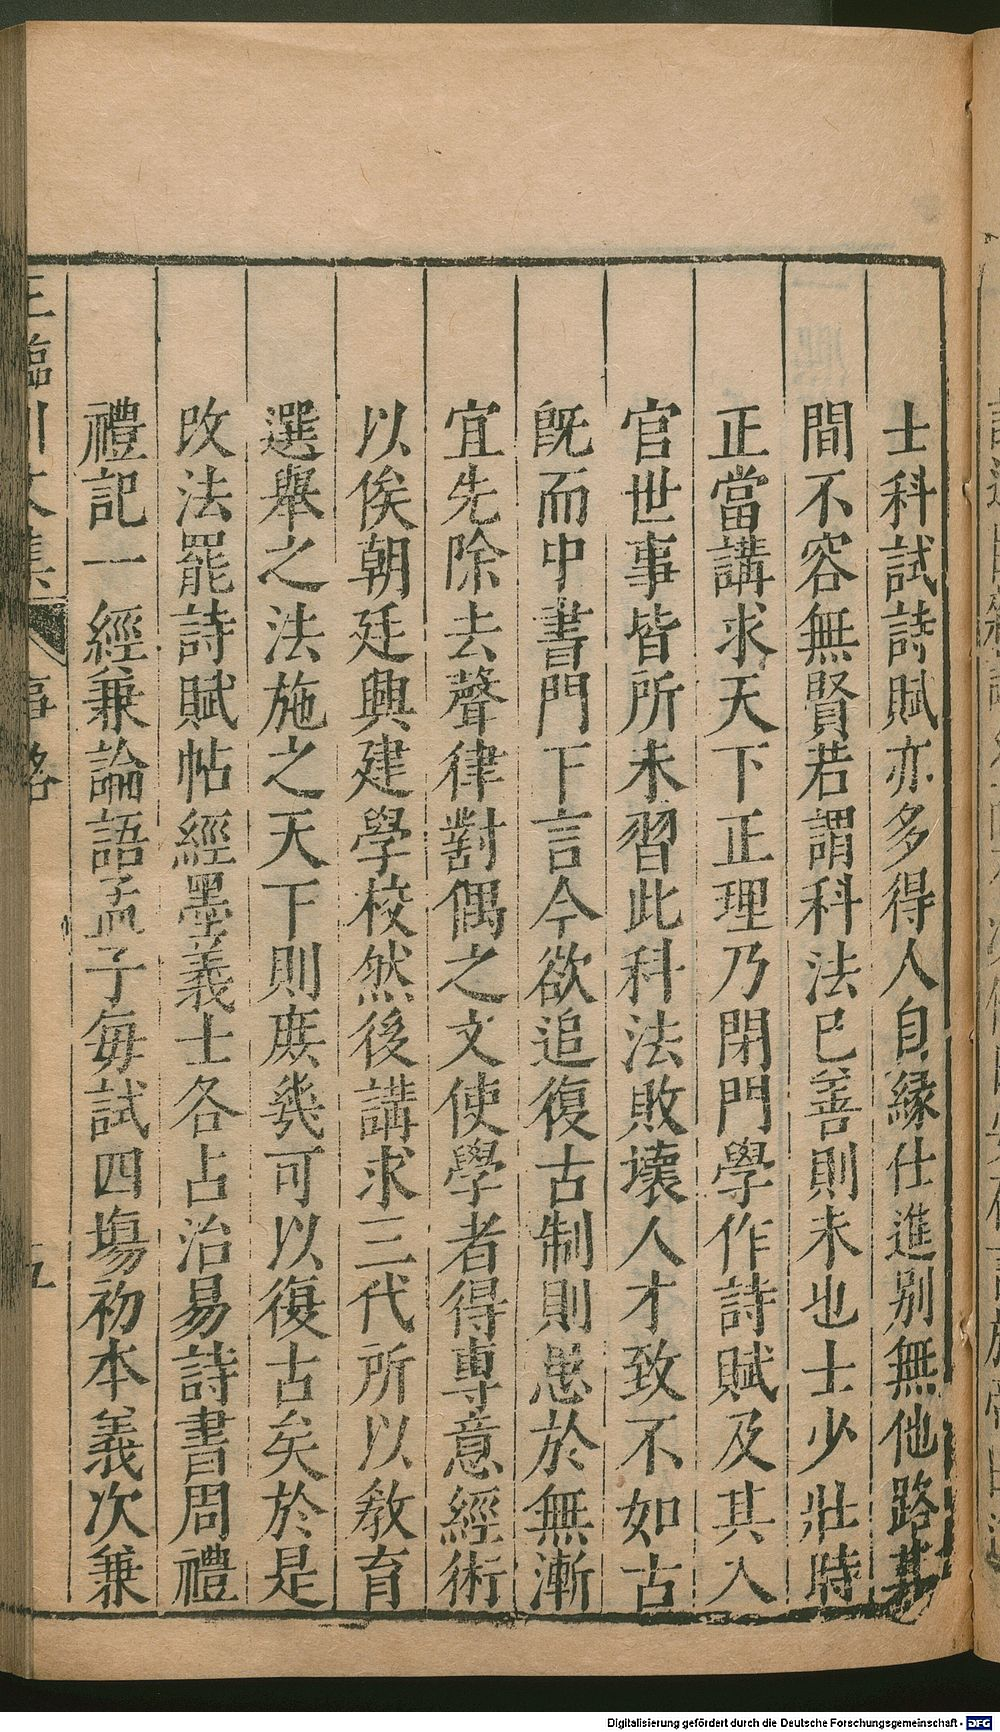 士科試詩賦亦多得人自緣仕進別無他路其
間不容無賢若謂科法已善則未也士少壯時
正當講求天下正理乃閉門學作詩賦及其入
官世事皆所未習此科法敗壞人才致不如古
旣而中書門下言今欲追復古制則患於無漸
宜先除去聲律對偶之文使學者得專意經術
以俟朝廷興建學校然後講求三代所以敎育
選舉之法施之天下則庶幾可以復古矣於是
改法罷詩賦帖經墨義士各占治易詩書周禮
禮記一經兼論語孟子每試四塲初本義次兼
王臨川文集 事畧 五
Digitalisierung gefördert durch die Deutsche Forschungsgemeinschaft - DFG